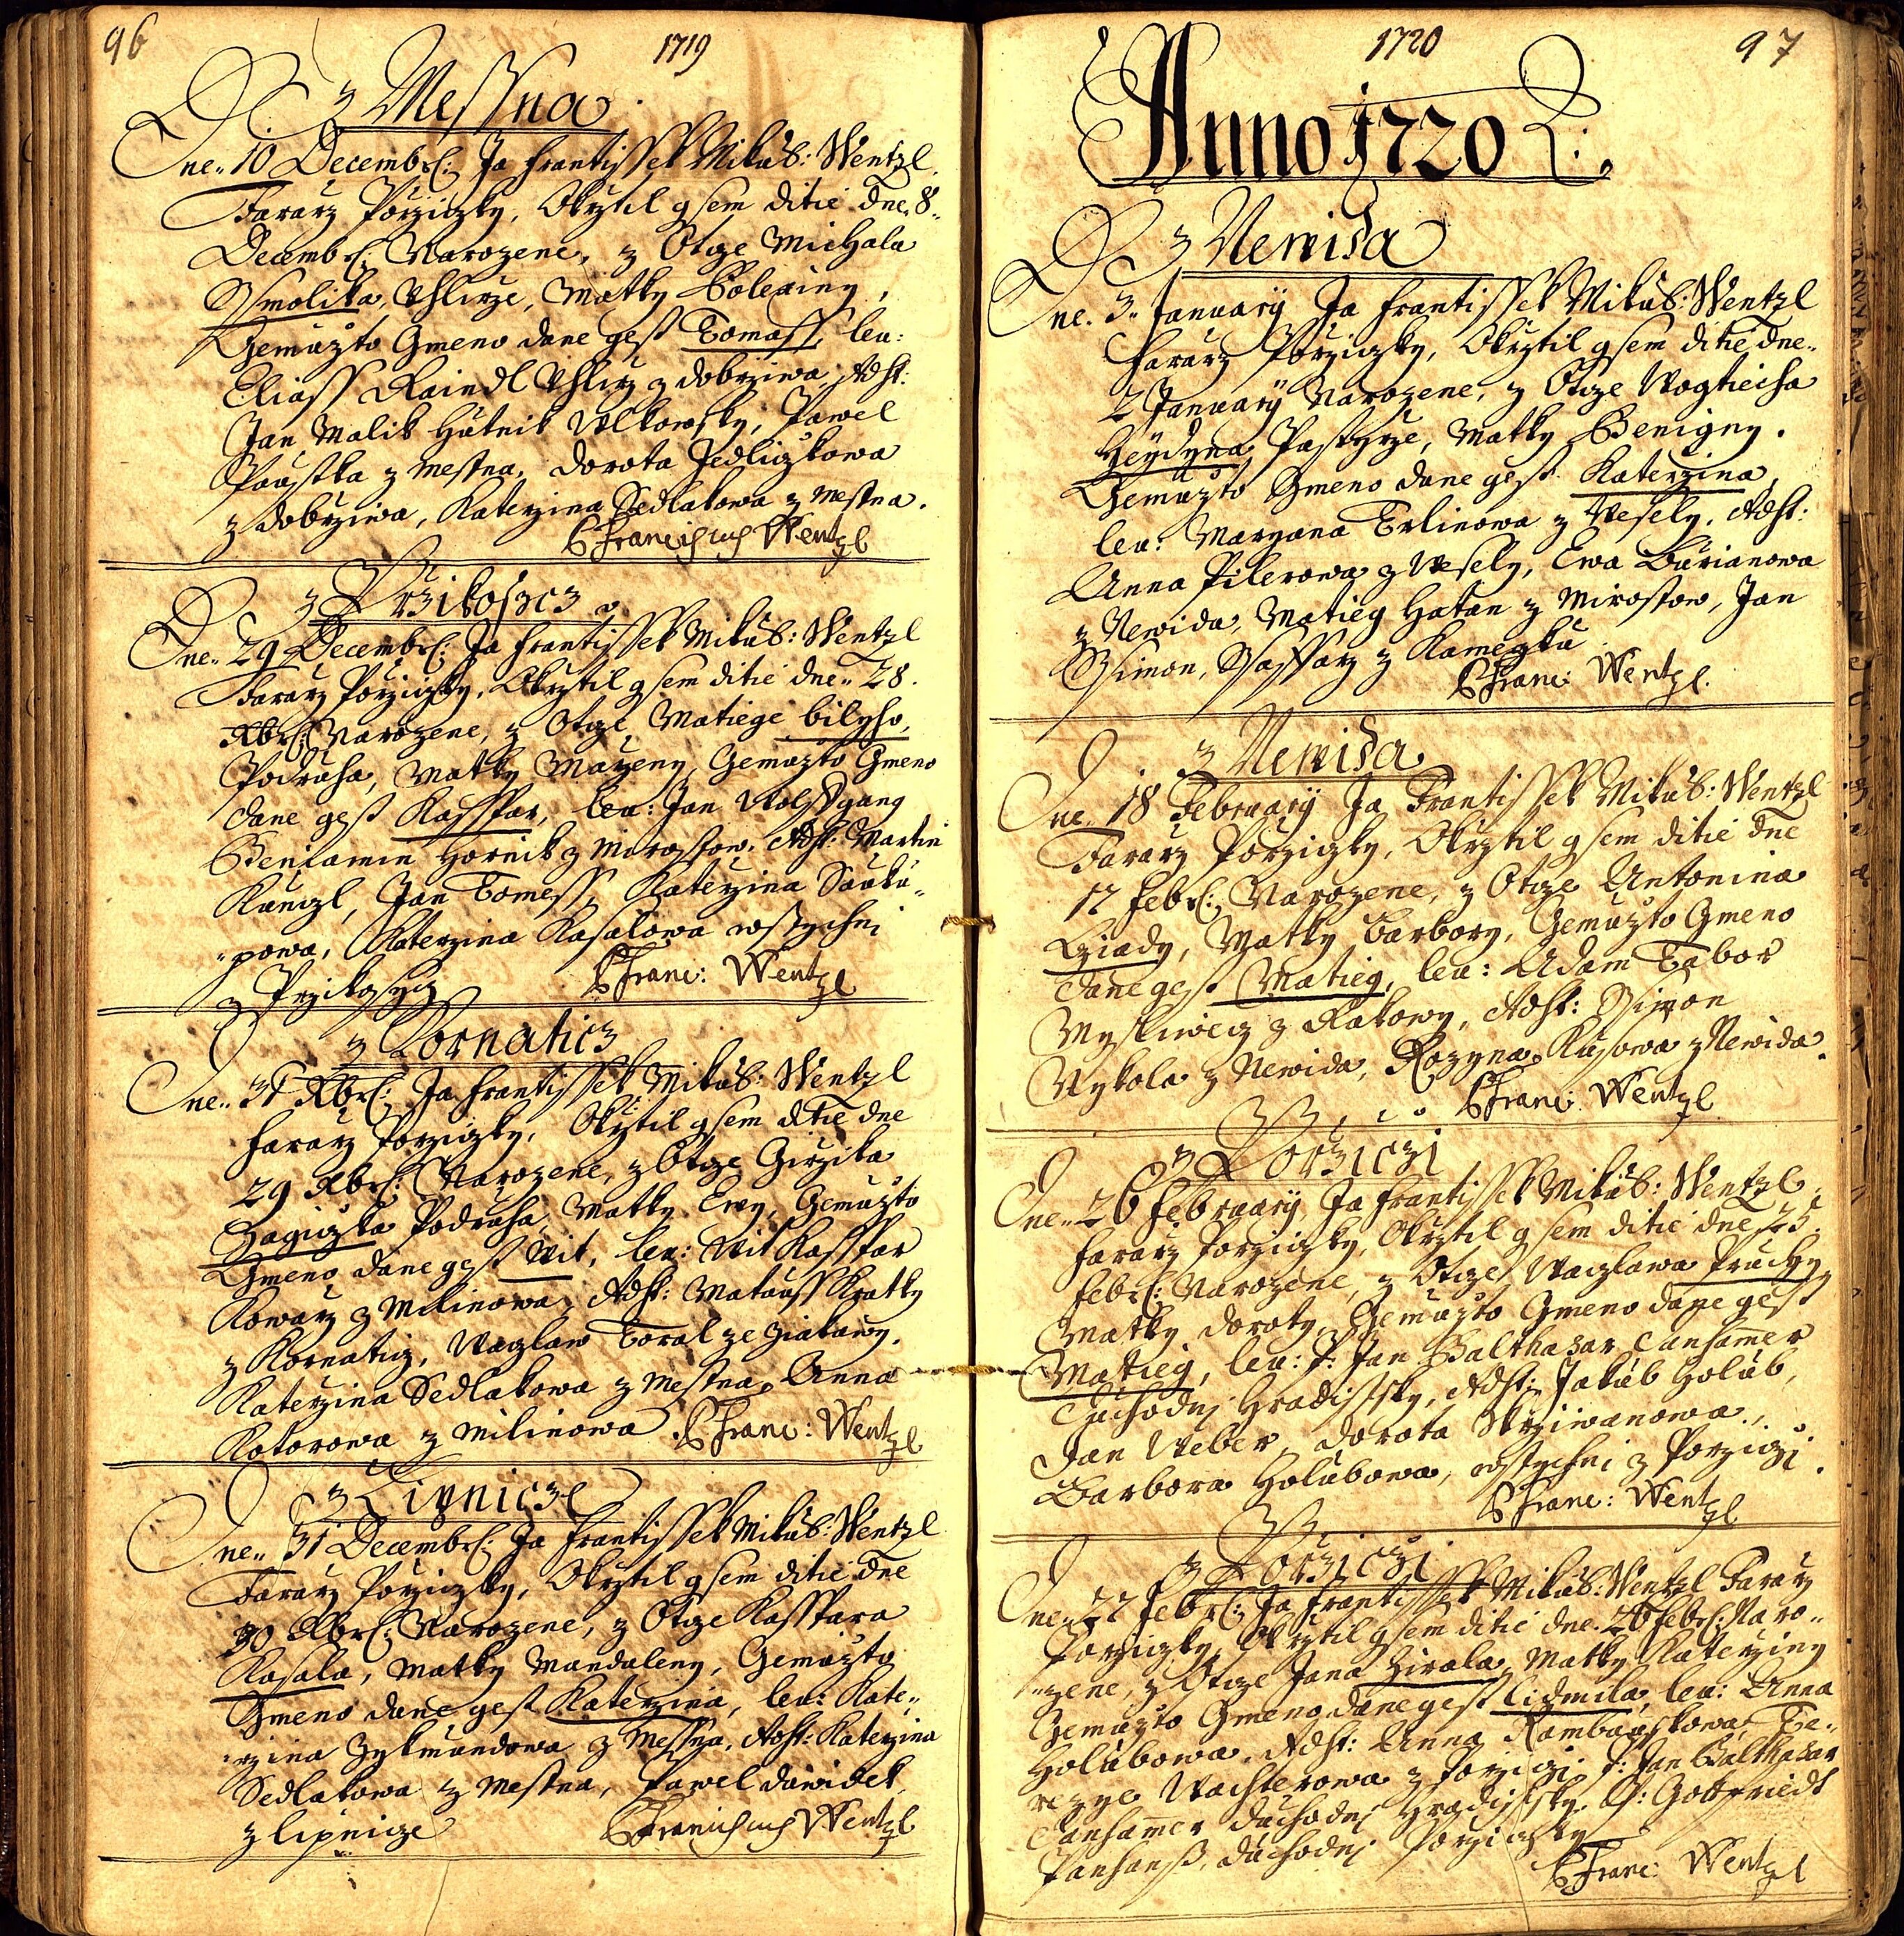 96
1719
z Messna
Dne 10 Decembr: Ja Frantissek Mikub: Wentzl
Fararz Porziczky, Okrztil gsem ditie dne 8
Decembr: Narozene, z Otcze Michala
Smolika, Uhlirze, Matky Polexiny,
Gemuzto Gmeno dane gest Tomass, leu:
Eliass Raindl Uhlirz z dobrziwa, Adst:
Jan Malik Hutnik Wlkowsky, Pawel
Paustka z Mestna, dorota Jedliczkowa
z dobrziwa, Katerzina Sedlakowa z Mestna.
P Franciscus Wentzl
z Przikosicz
Dne 29 Decembr: Ja Frantissek Mikub: Wentzl
Fararz Porziczky, Okrztil gsem ditie dne 28.
Xbr: Narozene, z Otcze Matiege bilyho,
Podruha, Matky Mareny, Gemuzto Gmeno
dane gest Kasspar, leu: Jan Wolffgang
Beniamin Hornik z Mirossow. Adst: Martin
Kunczl, Jan Tomess, Katerzina Sauku-
powa, Katerzina Kasalowa wssychni
z Przikosycz
P Franc: Wentzl
z Kornaticz
Dne 31 Xbr: Ja Frantissek Mikub: Wentzl
Fararz Porziczky, Okrztil gsem ditie dne
29 Xbr: Narozene, z Otcze Girzika
Zagiczka Podruha, Matky Ewy, Gemuzto
Gmeno dane gest Wit, leu: Wit Kasspar
Kowarz z Milinowa, Adst: Matauss Kratky
z Kornaticz, Waczlaw Toral ze Ziakawy,
Katerzina Sedlakowa z Mestna, Anna
Kotorowa z Milinowa P Franc: Wentzl
z Lipnicze
Dne 31 Decembr: Ja Frantissek Mikub: Wentzl
Fararz Porziczky, Okrztil gsem ditie dne
30 Xbr: Narozene, z Otcze Kasspara
Kasala, Matky Mandaleny, Gemuzto
Gmeno dane gest Katerzina, leu: Kate-
rzina Zykmundowa z Messna, Adst: Katerzina
Sedlakowa z Mestna, Pawel dawidek
z lipnicze
P Franciscus Wentzl
1720
97
Anno 1720
z Newida
Dne. 3 January Ja Frantissek Mikub: Wentzl
Fararz Porziczky, Okrztil gsem ditie dne
2 January Narozene, z Otcze Wogtiecha
Heydyna Pastyrze, Matky Benigny.
Gemuzto Gmeno dane gest Katerzina,
leu: Maryana Erlinowa z Wesely. Adst:
Anna Pilerowa z Wesely, Ewa Burianowa
z Newida Matieg Hatan z Mirossow, Jan
Ssimon, Ssaffarz z Kamegku
P Franc: Wentzl.
z Newida
Dne 18 February Ja Frantissek Mikub: Wentzl
Fararz Porziczky, Okrztil gsem ditie dne
17 Febr: Narozene, z Otcze Antonina
Cziady, Matky Barbory, Gemuzto Gmeno
dane gest Matieg, leu: Adam Tabor
Mysliwecz z Rakowy, Adst: Ssimon
Nykola z Newida, Rozyna Kusowa z Newida.
P Franc: Wentzl
z Porziczi
Dne 26 February Ja Frantissek Mikub: Wentzl
Fararz Porziczky, Okrztil gsem ditie dne 25
Febr: Narozene, z Otcze Waczlawa Pruchy,
Matky doroty, Gemuzto Gmeno dane gest
Matieg, leu: P: Jan Balthazar Tanhamer
Duchodni Hradisstsky, Adst: Jakub Holub,
Jan Weber, dorota Skrziwanowa,
Barbora Holubowa, wssychni z Porziczi.
P Franc: Wentzl
z Porziczi
Dne 27 Febr: Ja Frantissek Mikub: Wentzl Fararz
Porziczky, Okrztil gsem ditie dne 26 Febr: Naro-
zene, z Otcze Jana Zirala, Matky Katerziny
Gemuzto Gmeno dane gest Lidmila, leu: Anna
Holubowa. Adst: Anna Rambauskowa, Te-
rezye Wachterowa z Porziczi, P: Jan Balthazar
Tanhamer duchodni Hradisstsky, P: Gottfriedt
Panhanss, duchodni Porziczky
P Franc: Wentzl